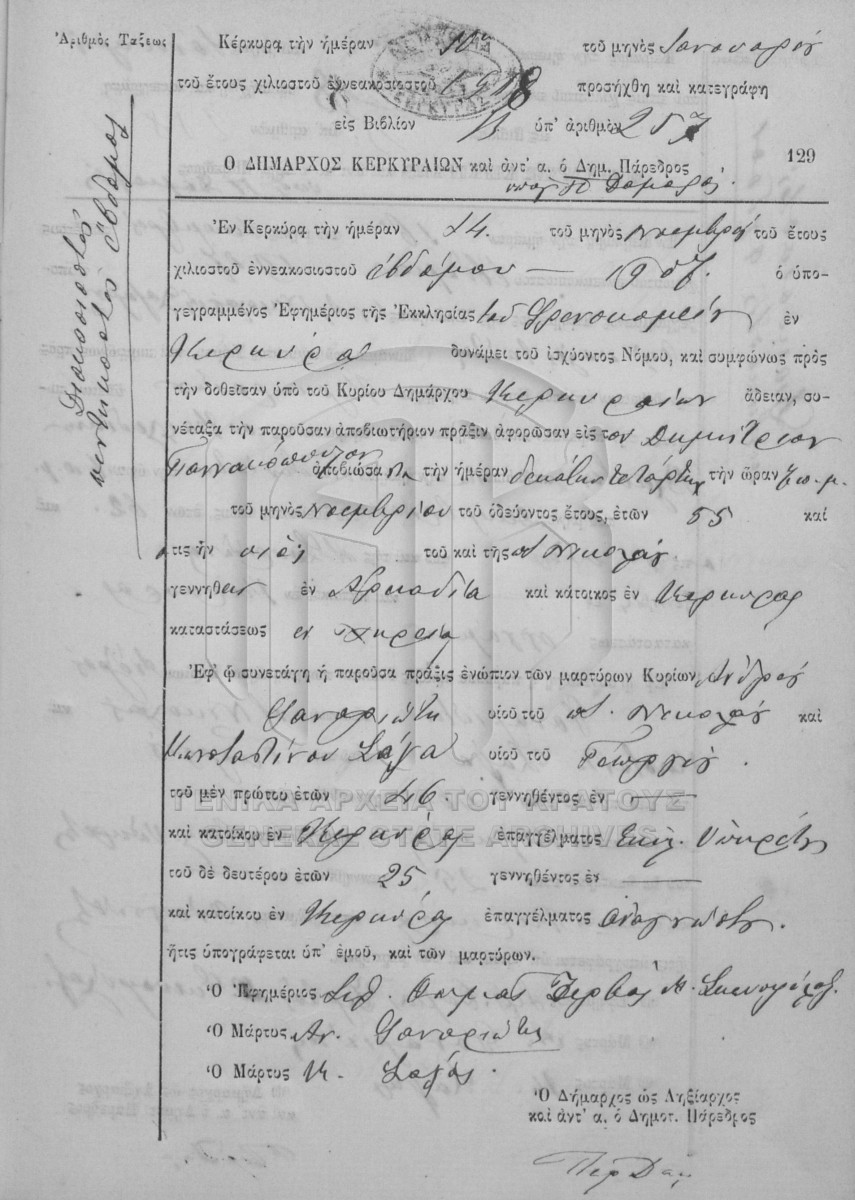 Ἀριθμὸς Τάξεως
Κέρκυρα τὴν ἡμέραν 10 τοῦ μηνὸς Ἰανουαρίου
τοῦ ἔτους χιλιοστοῦ ἐννεακοσιοστοῦ 1908 προσήχθη καὶ κατεγράφη
εἰς Βιβλίον ὑπ' ἀριθμὸν 257
129
Ο ΔΗΜΑΡΧΟΣ ΚΕΡΚΥΡΑΙΩΝ καὶ ἀντ' α. ὁ Δημ. Πάρεδρος
Διακοσιοστὸς
πεντηκοστὸς ἕβδομος
Ἐν Κερκύρᾳ τὴν ἡμέραν 14. τοῦ μηνὸς Νοεμβρίου τοῦ ἔτους
χιλιοστοῦ ἐννεακοσιοστοῦ ἑβδόμου — 1907. ὁ ὑπο-
γεγραμμένος Ἐφημέριος τῆς Ἐκκλησίας τοῦ Φρενοκομείου ἐν
Κερκύρᾳ δυνάμει τοῦ ἰσχύοντος Νόμου, καὶ συμφώνως πρὸς
τὴν δοθεῖσαν ὑπὸ τοῦ Κυρίου Δημάρχου Κερκυραίων ἄδειαν, συ-
νέταξα τὴν παροῦσαν ἀποβιωτήριον πρᾶξιν ἀφορῶσαν εἰς τὸν Δημήτριον
Γιαννακόπουλον ἀποβιώσαντα τὴν ἡμέραν δεκάτην τετάρτην τὴν ὥραν 7 π.μ.
τοῦ μηνὸς Νοεμβρίου τοῦ ὁδεύοντος ἔτους, ἐτῶν 55 καί
τις ἦν υἱὸς τοῦ καὶ τῆς π. Νικολάου
γεννηθεὶς ἐν Ἀρκαδίᾳ καὶ κάτοικος ἐν Κερκύρᾳ
καταστάσεως ἐν χηρείᾳ
Ἐφ' ᾧ συνετάγη ἡ παροῦσα πρᾶξις ἐνώπιον τῶν μαρτύρων Κυρίων Ἀνδρέου
υἱοῦ τοῦ π. Νικολάου καὶ
Κωνσταντίνου Σαγιᾶ υἱοῦ τοῦ Γεωργίου.
τοῦ μὲν πρώτου ἐτῶν 46 γεννηθέντος ἐν —
ΓΕΝΙΚΑ ΑΡΧΕΙΑ ΤΟΥ ΚΡΑΤΟΥΣ
καὶ κατοίκου ἐν Κερκύρᾳ ἐπαγγέλματος Ἐκκλ. Ὑπηρέτης
GENERAL STATE ARCHIVES
τοῦ δὲ δευτέρου ἐτῶν 25 γεννηθέντος ἐν —
καὶ κατοίκου ἐν Κερκύρᾳ ἐπαγγέλματος ἀναγνώστου
ἥτις ὑπογράφεται ὑπ' ἐμοῦ, καὶ τῶν μαρτύρων.
Ὁ Ἐφημέριος
Ὁ Μάρτυς Ἀν.
Ὁ Μάρτυς Κ.
Ὁ Δήμαρχος ὡς Ληξίαρχος
καὶ ἀντ' α. ὁ Δημοτ. Πάρεδρος